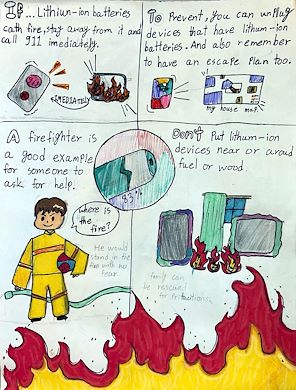 IF... Lithiun-ion batteries
cath fire, stay away from it and
call 911 imediately.
To Prevent, you can unPlug
devices that have lithum-ion
batteries. And also remember
to have an escape Plan too.
my house map.
A firefighter is
a good example
for someone to
ask for help.
Don't Put lithum-ion
devices near or aroud
fuel or wood.
where is
the
fire?
He would
stand in the
fire with no
fear.
family can
be rescued